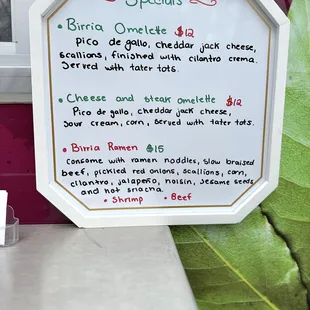 Specials
• Birria Omelette $12
Pico de gallo, cheddar jack cheese,
scallions, finished with cilantro crema.
Served with tater tots.
• Cheese and steak omelette $12
Pico de gallo, cheddar jack cheese,
sour cream, corn, served with tater tots.
• Birria Ramen $15
consome with ramen noodles, slow braised
beef, pickled red onions, scallions, corn,
cilantro, jalapeño, hoisin, sesame seeds
and hot sriracha.
• Shrimp • Beef